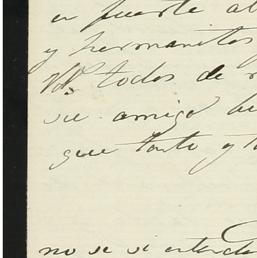 en fuerte ab
y hermanitos
Vds todos de
su amigo
que tanto y t
no se si entende